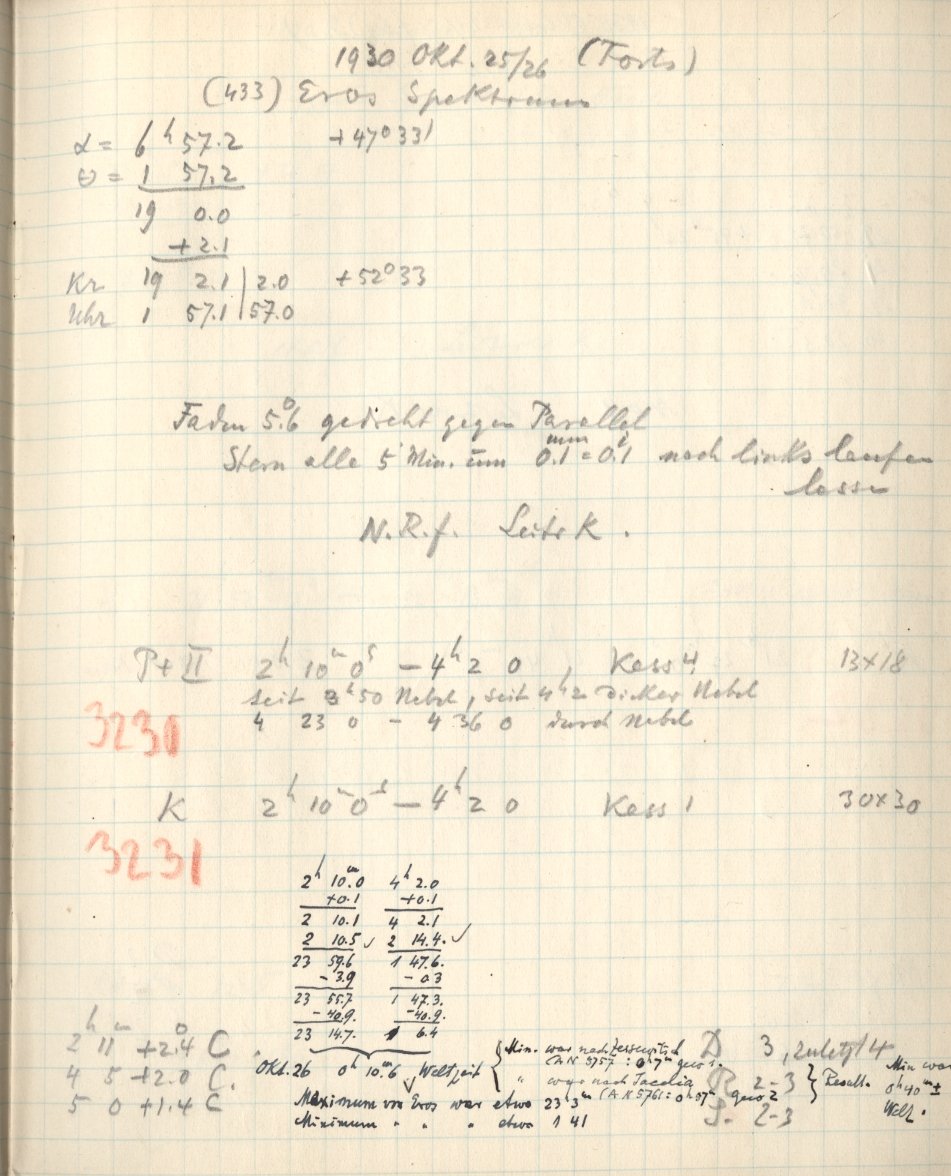 1930 Okt. 25/26 (Forts)
(433) Eros Spektrum
α = 6h 57.2 +47° 33'
Θ = 1 57.2
19 0.0
+2.1
Kr 19 2.1 | 2.0 +52° 33
Uhr 1 57.1 | 57.0
Faden 5.°6 gedreht gegen Parallel
Stern alle 5 Min. um 0.1mm = 0.1 nach links laufen
lassen
N.R.f. Leitr K.
P+II 2h 10m 0s – 4h 2 0, Kass 4 13x18
seit 3h 50 Nebel, seit 4h 2 dicker Nebel
3230 4 23 0 – 4 36 0 durch Nebel
K 2h 10m 0s – 4h 2 0 Kass 1 30x30
3231
2h 10m.0 4h 2.0
+0.1 +0.1
2 10.1 4 2.1
2 10.5 ✓ 2 14.4. ✓
23 59.6 1 47.6.
– 3.9 – 0.3
23 55.7 1 47.3.
– 40.9. – 40.9.
23 14.7. 1 6.4
2h 11m +2.4° C.
4 5 +2.0 C.
5 0 +1.4 C
Okt. 26 0h 10m.6 Weltzeit
Min. war nach
(AN 5757 : 0h 7m
" nach
(AN 5761 : 0h 07m
Maximum von Eros war etwa 23h 3m
Minimum " " " etwa 1 41
D 3, zuletzt 4
R 2-3
S. 2-3
Min war
0h 40m ±
Welt.